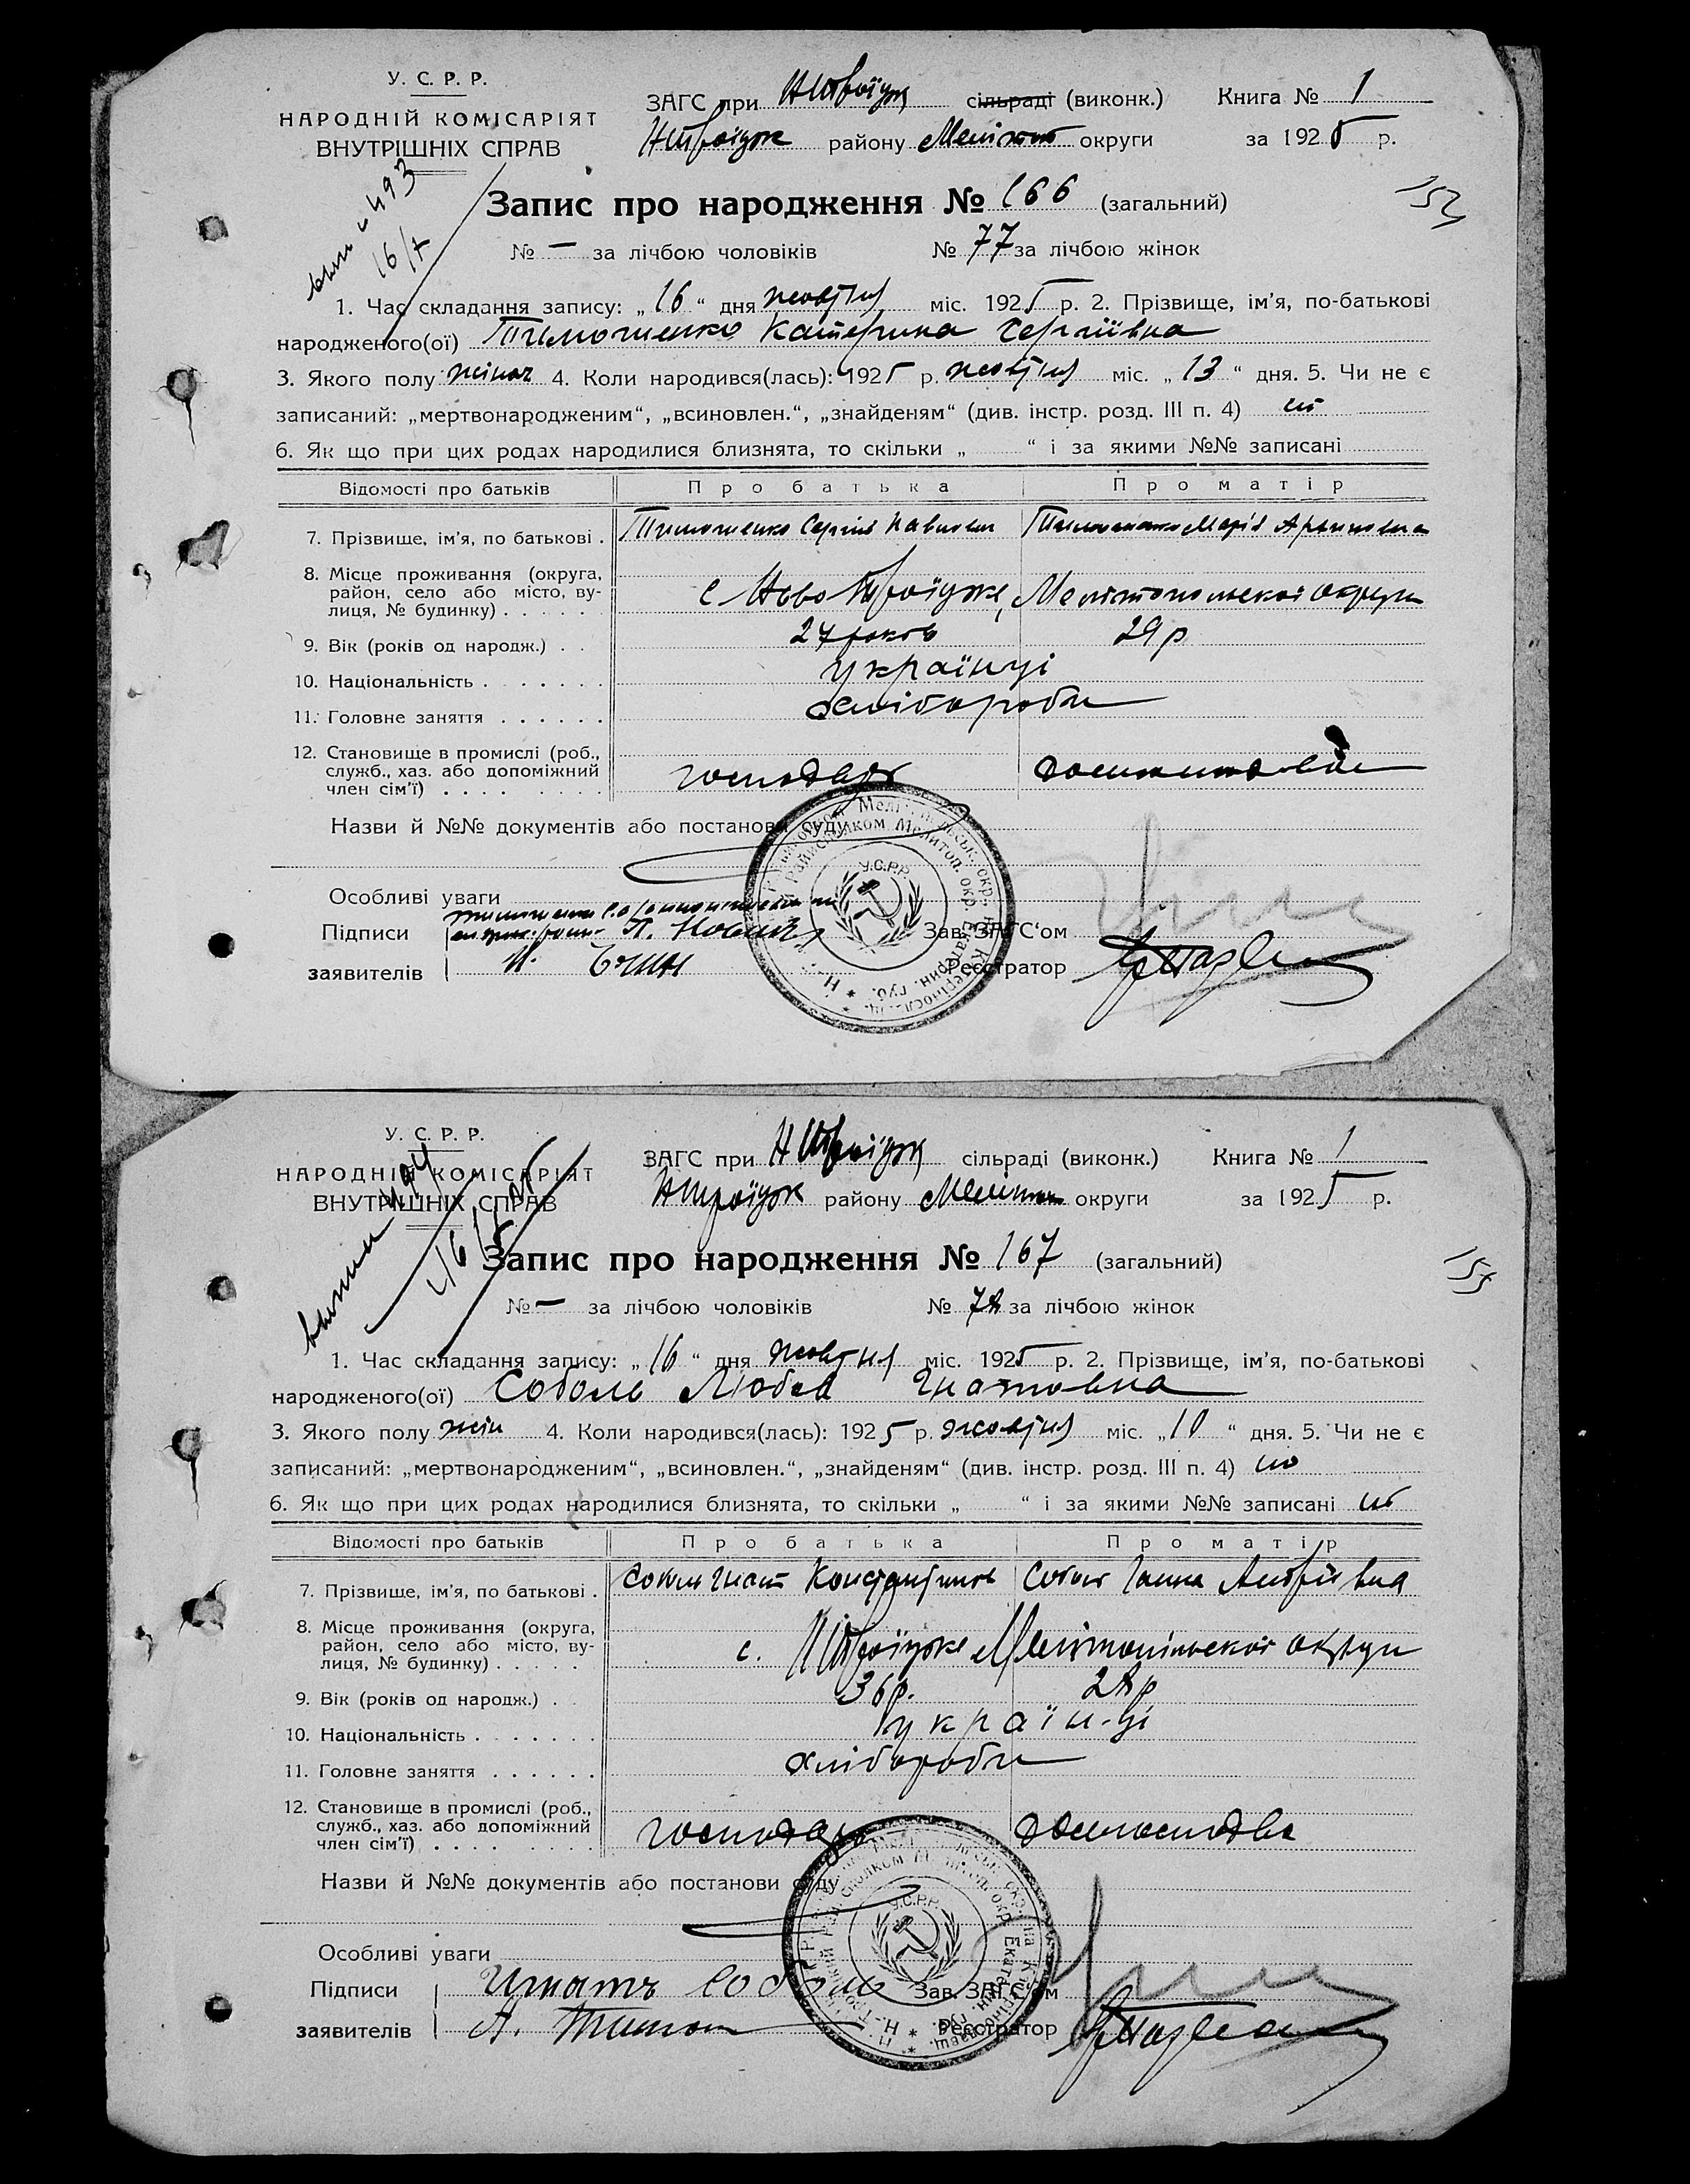 У. С. Р. Р.
НАРОДНІЙ КОМІСАРІЯТ
ВНУТРІШНІХ СПРАВ
ЗАГС при НТроїцк сільраді (виконк.) Книга № 1
НТроїцьк району Меліт округи за 1925 р.
493
16/X
152
Запис про народження № 166 (загальний)
№ — за лічбою чоловіків № 77 за лічбою жінок
1. Час складання запису: „16“ дня жовтня міс. 1925 р. 2. Прізвище, ім'я, по-батькові
народженого(ої) Тимошенко Катерина Сергіївна
3. Якого полу жіноч 4. Коли народився(лась): 1925 р. жовтня міс. „13“ дня. 5. Чи не є
записаний: „мертвонародженим“, „всиновлен.“, „знайденям“ (див. інстр. розд. III п. 4) ні
6. Як що при цих родах народилися близнята, то скільки „ “ і за якими №№ записані
Відомості про батьків Про батька Про матір
7. Прізвище, ім'я, по батькові . Тимошенко Сергій Павлович Тимошенко Марія
8. Місце проживання (округа,
район, село або місто, ву-
лиця, № будинку) . . . . . с Ново Троїцьке, Мелітопольської округи
9. Вік (років од народж.) . . 27 років 29 р
10. Національність . . . . . . . українці
11. Головне заняття . . . . . . хлібороби
12. Становище в промислі (роб.,
служб., хаз. або допоміжний
член сім'ї) . . . . . . . . господарь
Назви й №№ документів або постанови суду
У.С.Р.Р.
Особливі уваги
Підписи
заявителів
Зав. ЗАГС'ом
Реєстратор
У. С. Р. Р.
НАРОДНІЙ КОМІСАРІЯТ
ВНУТРІШНІХ СПРАВ
ЗАГС при НТроїцк сільраді (виконк.) Книга № 1
НТроїцьк району Меліт округи за 1925 р.
153
Запис про народження № 167 (загальний)
№ — за лічбою чоловіків № 78 за лічбою жінок
1. Час складання запису: „16“ дня жовтня міс. 1925 р. 2. Прізвище, ім'я, по-батькові
народженого(ої) Соболь Любов Гнатовна
3. Якого полу жін 4. Коли народився(лась): 1925 р. жовтня міс. „10“ дня. 5. Чи не є
записаний: „мертвонародженим“, „всиновлен.“, „знайденям“ (див. інстр. розд. III п. 4) ні
6. Як що при цих родах народилися близнята, то скільки „ “ і за якими №№ записані ні
Відомості про батьків Про батька Про матір
7. Прізвище, ім'я, по батькові . Соболь Гнат Константинов Соболь Ганна Андріївна
8. Місце проживання (округа,
район, село або місто, ву-
лиця, № будинку) . . . . . с. НТроїцьке Мелітопільської округи
9. Вік (років од народж.) . 36 р. 28 р
10. Національність . . . . . . . українці
11. Головне заняття . . . . . . хлібороби
12. Становище в промислі (роб.,
служб., хаз. або допоміжний
член сім'ї) . . . . . . . . господарь
Назви й №№ документів або постанови суду
У.С.Р.Р.
Особливі уваги
Підписи Игнатъ Соболь
заявителів
Зав. ЗАГС'ом
Реєстратор